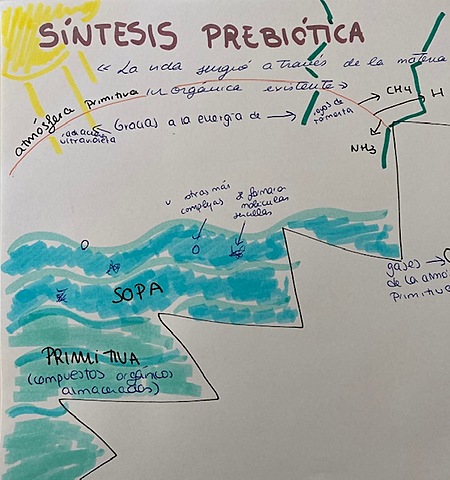 SÍNTESIS PREBIÓTICA
« La vida surgió a través de la materia
inorgánica existente »
atmósfera primitiva
radiación
ultravioleta
Gracias a la energía de
rayos de
tormenta
CH4
H
NH3
otras más
complejas
se forman
moléculas
sencillas
gases
de la atmó
Primitiva
SOPA
PRIMITIVA
(compuestos orgánicos
almacenados)